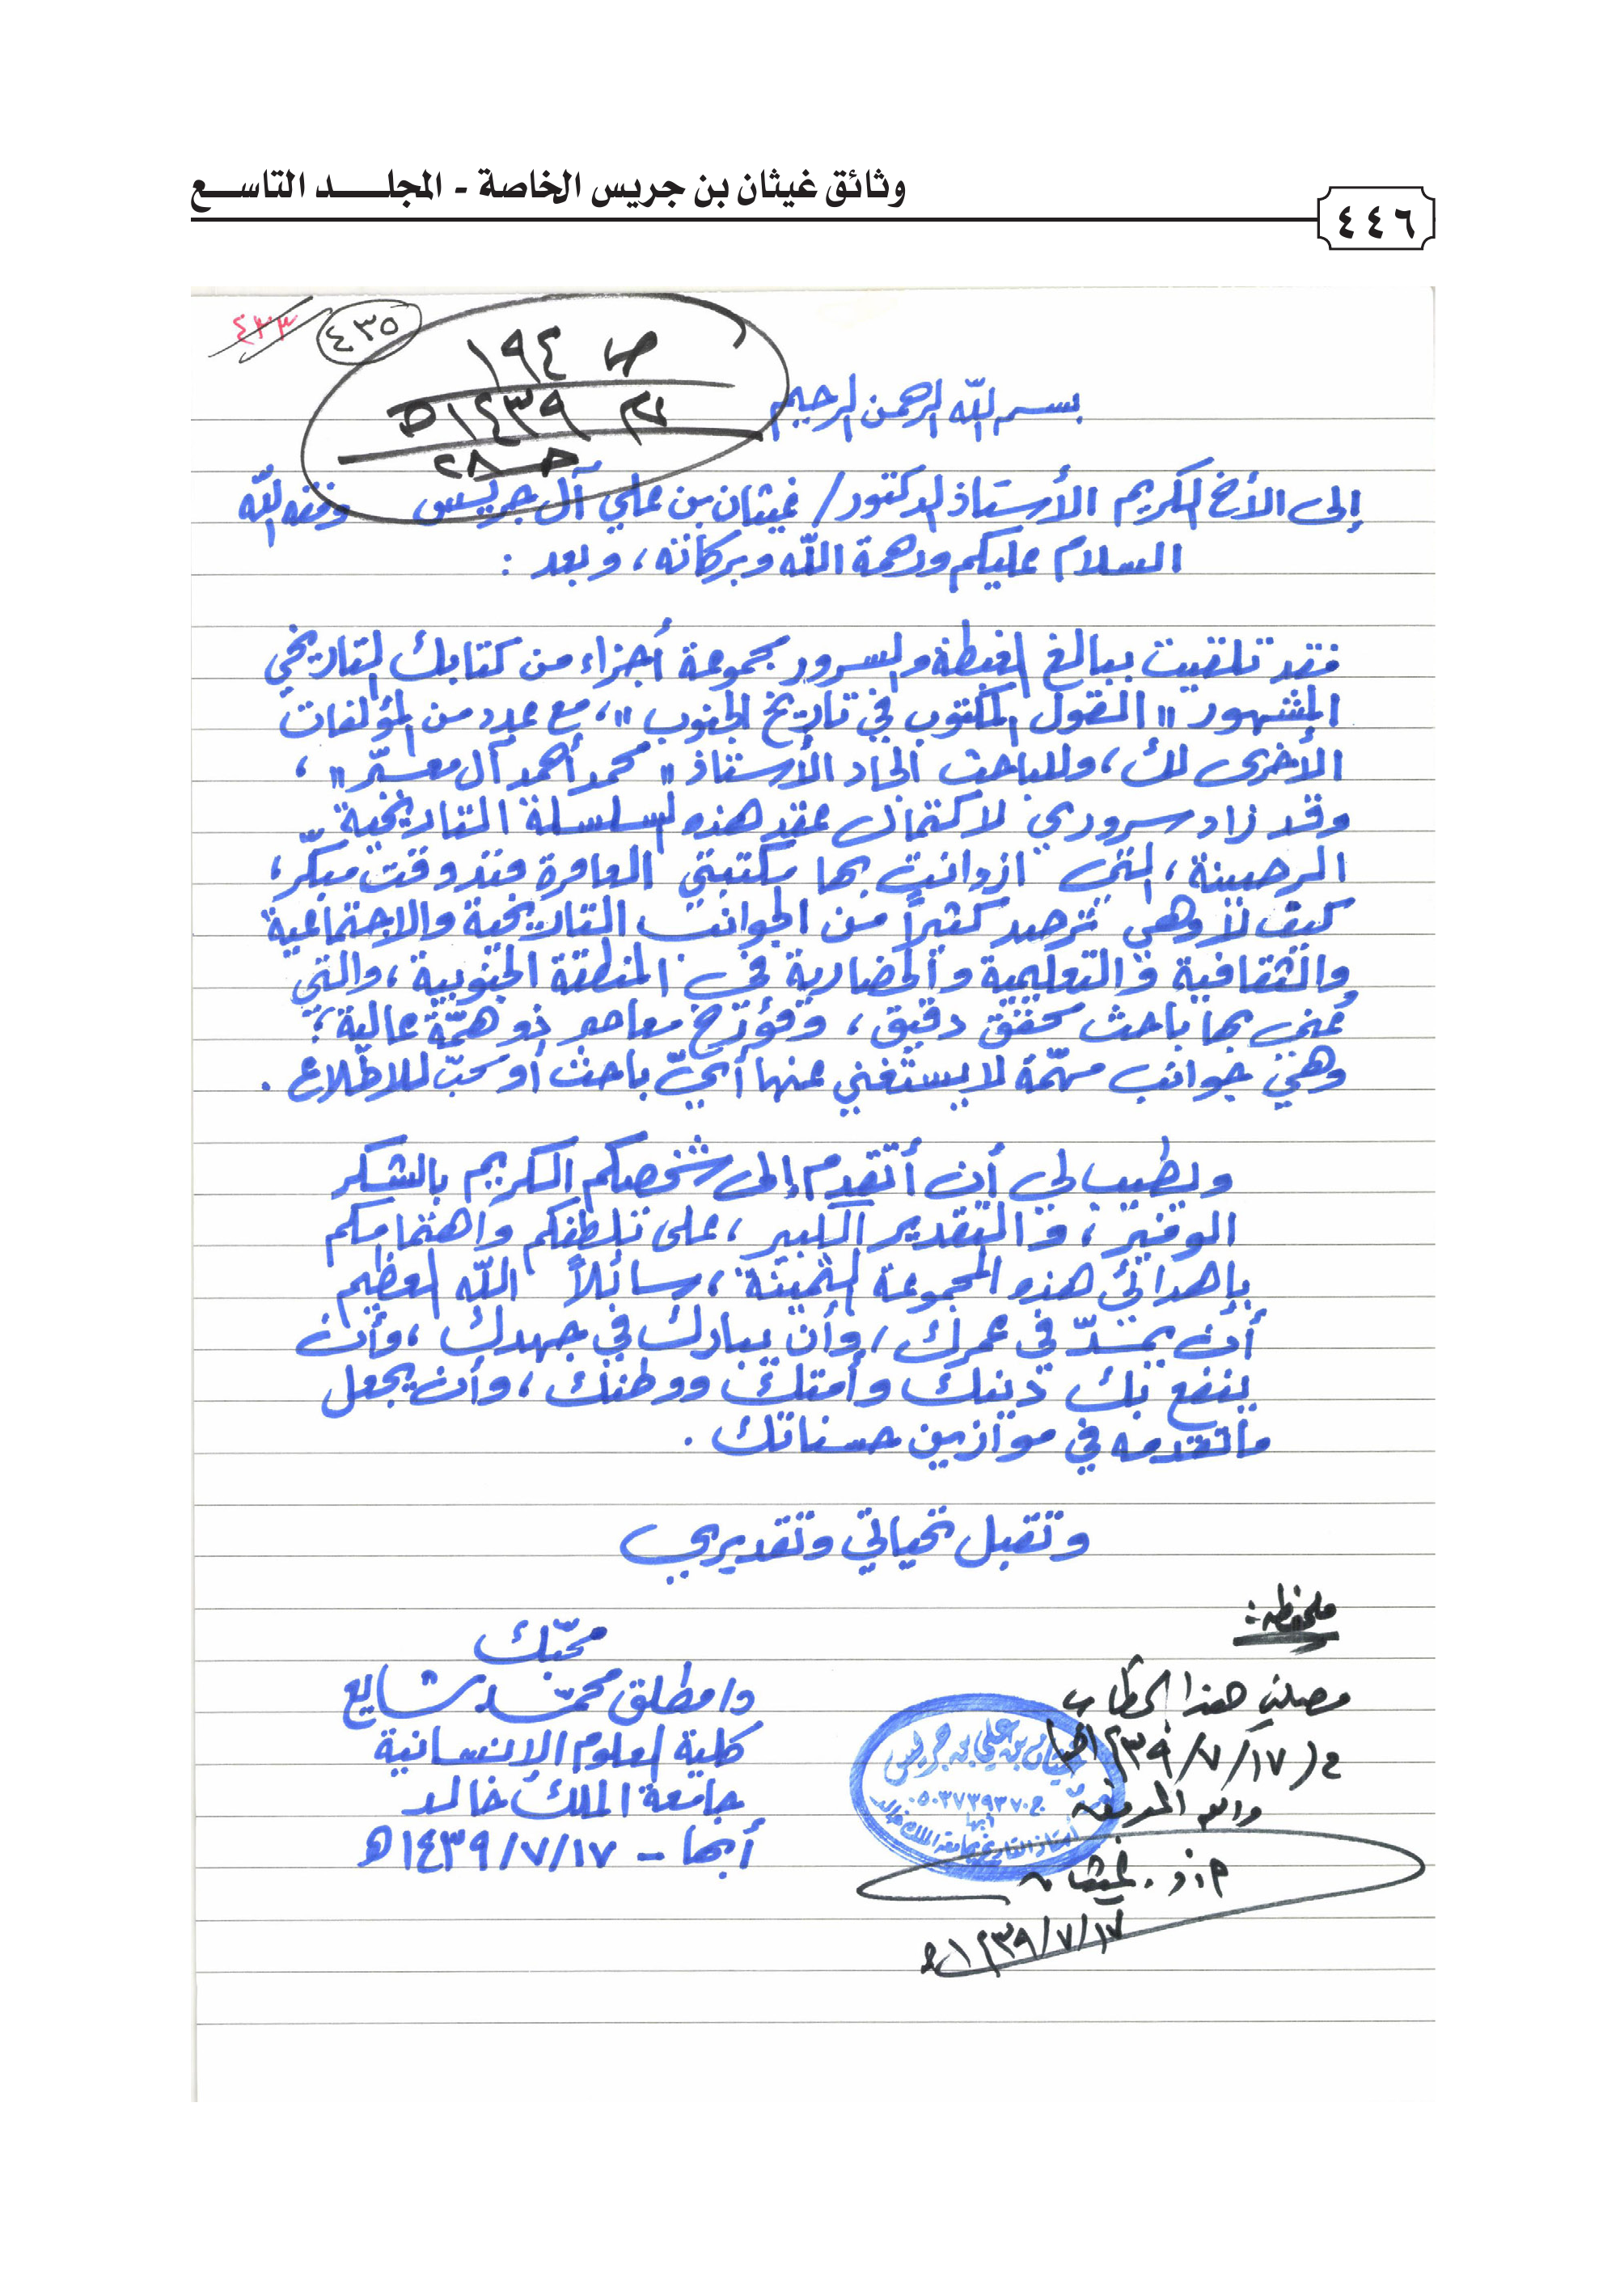 وثائق غيثان بن جريس الخاصة - المجلد التاسع
٤٤٦
٤٣٣
٤٣٥
ص ١٩٤
١٤٣٩هـ
حـ ٢٨
بسم الله الرحمن الرحيم
إلى الأخ الكريم الأستاذ الدكتور/ غيثان بن علي آل جريس وفقه الله
السلام عليكم ورحمة الله وبركاته، وبعد:
فقد تلقيت ببالغ الغبطة والسرور مجموعة أجزاء من كتابك التاريخي
المشهور "القول المكتوب في تاريخ الجنوب"، مع عدد من المؤلفات
الأخرى لك، وللباحث الجاد الأستاذ "محمد أحمد آل معبّر"،
وقد زاد سروري لاكتمال عقد هذه السلسلة التاريخية
الرصينة، التي ازدانت بها مكتبتي العامرة منذ وقت مبكّر،
كيف لا وهي ترصد كثيراً من الجوانب التاريخية والاجتماعية
والثقافية والتعليمية والحضارية في المنطقة الجنوبية، والتي
عُني بها باحث محقق دقيق، ومؤرخ معاصر ذو همّة عالية؛
وهي جوانب مهمّة لا يستغني عنها أيّ باحث أو محبّ للاطّلاع.
ويطيب لي أن أتقدم إلى شخصكم الكريم بالشكر
الوفير، والتقدير الكبير، على تلطفكم واهتمامكم
بإهدائي هذه المجموعة الثمينة، سائلاً الله العظيم
أن يمدّ في عمرك، وأن يبارك في جهدك، وأن
ينفع بك دينك وأمتك ووطنك، وأن يجعل
ما تقدمه في موازين حسناتك.
وتقبل تحياتي وتقديري
محبّك
د/ مطلق محمّد شايع
كلية العلوم الإنسانية
جامعة الملك خالد
أبها - ١٧/٧/١٤٣٩هـ
ملحوظة:
وصلني هذا الخطاب
في (١٧/٧/١٤٣٩هـ)
والله الموفق
أ.د. غيثان
١٧/٧/١٤٣٩هـ
غيثان بن علي بن جريس
ج ٠٥٠٣٧٣٩٣٧٠
أبها
أستاذ التاريخ بجامعة الملك خالد